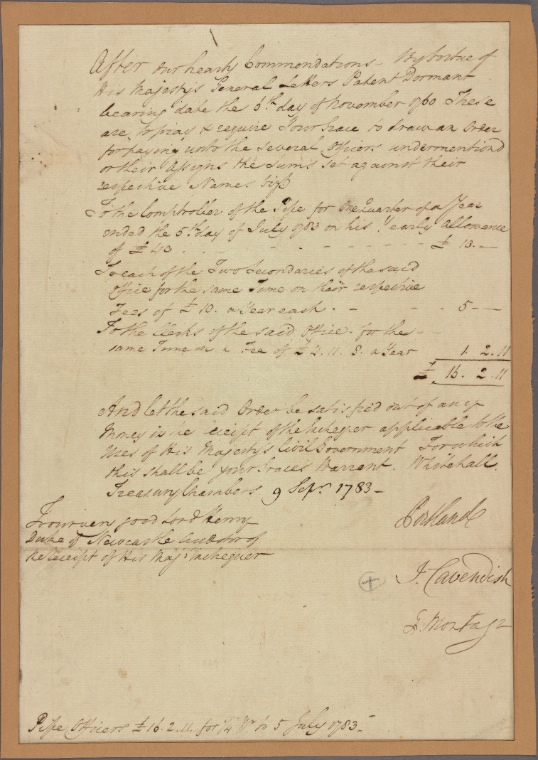 After our hearty Commendations. By Vertue of
His Majesty's General Letters Patent Dormant
bearing date the 5th day of November 1760 These
are to pray & require Your Grace to draw an Order
for paying unto the Several Officers undermentiond
or their Assigns the Sums set against their
respective Names Vizt
To the Comptroller of the Pipe for One Quarter of a Year
ended the 5th day of July 1783 on his yearly Allowance
of £ 40 . . - - - - - £ 10. —
To each of the Two Secondaries of the said
Office for the same Time on their respective
Fees of £ 10. a Year each . - - - 5 — —
To the Clerks of the said Office for the —
same Time on a Fee of £ 4. 11. 8. a Year 1. 2. 11
£ 16. 2. 11
And let the said Order be satisfied out of any
Money in the receipt of the Exchequer applicable to the
Uses of His Majesty's Civil Government For which
this shall be your Graces Warrant. Whitehall
Treasury Chambers 9 Sepr. 1783 —
To our very good Lord Henry
Duke of Newcastle Auditor of
the receipt of His Maj's Exchequer
Portland
J. Cavendish
F. Montagu
Pipe Officers £ 16. 2. 11. for 1/4 Yr to 5 July 1783